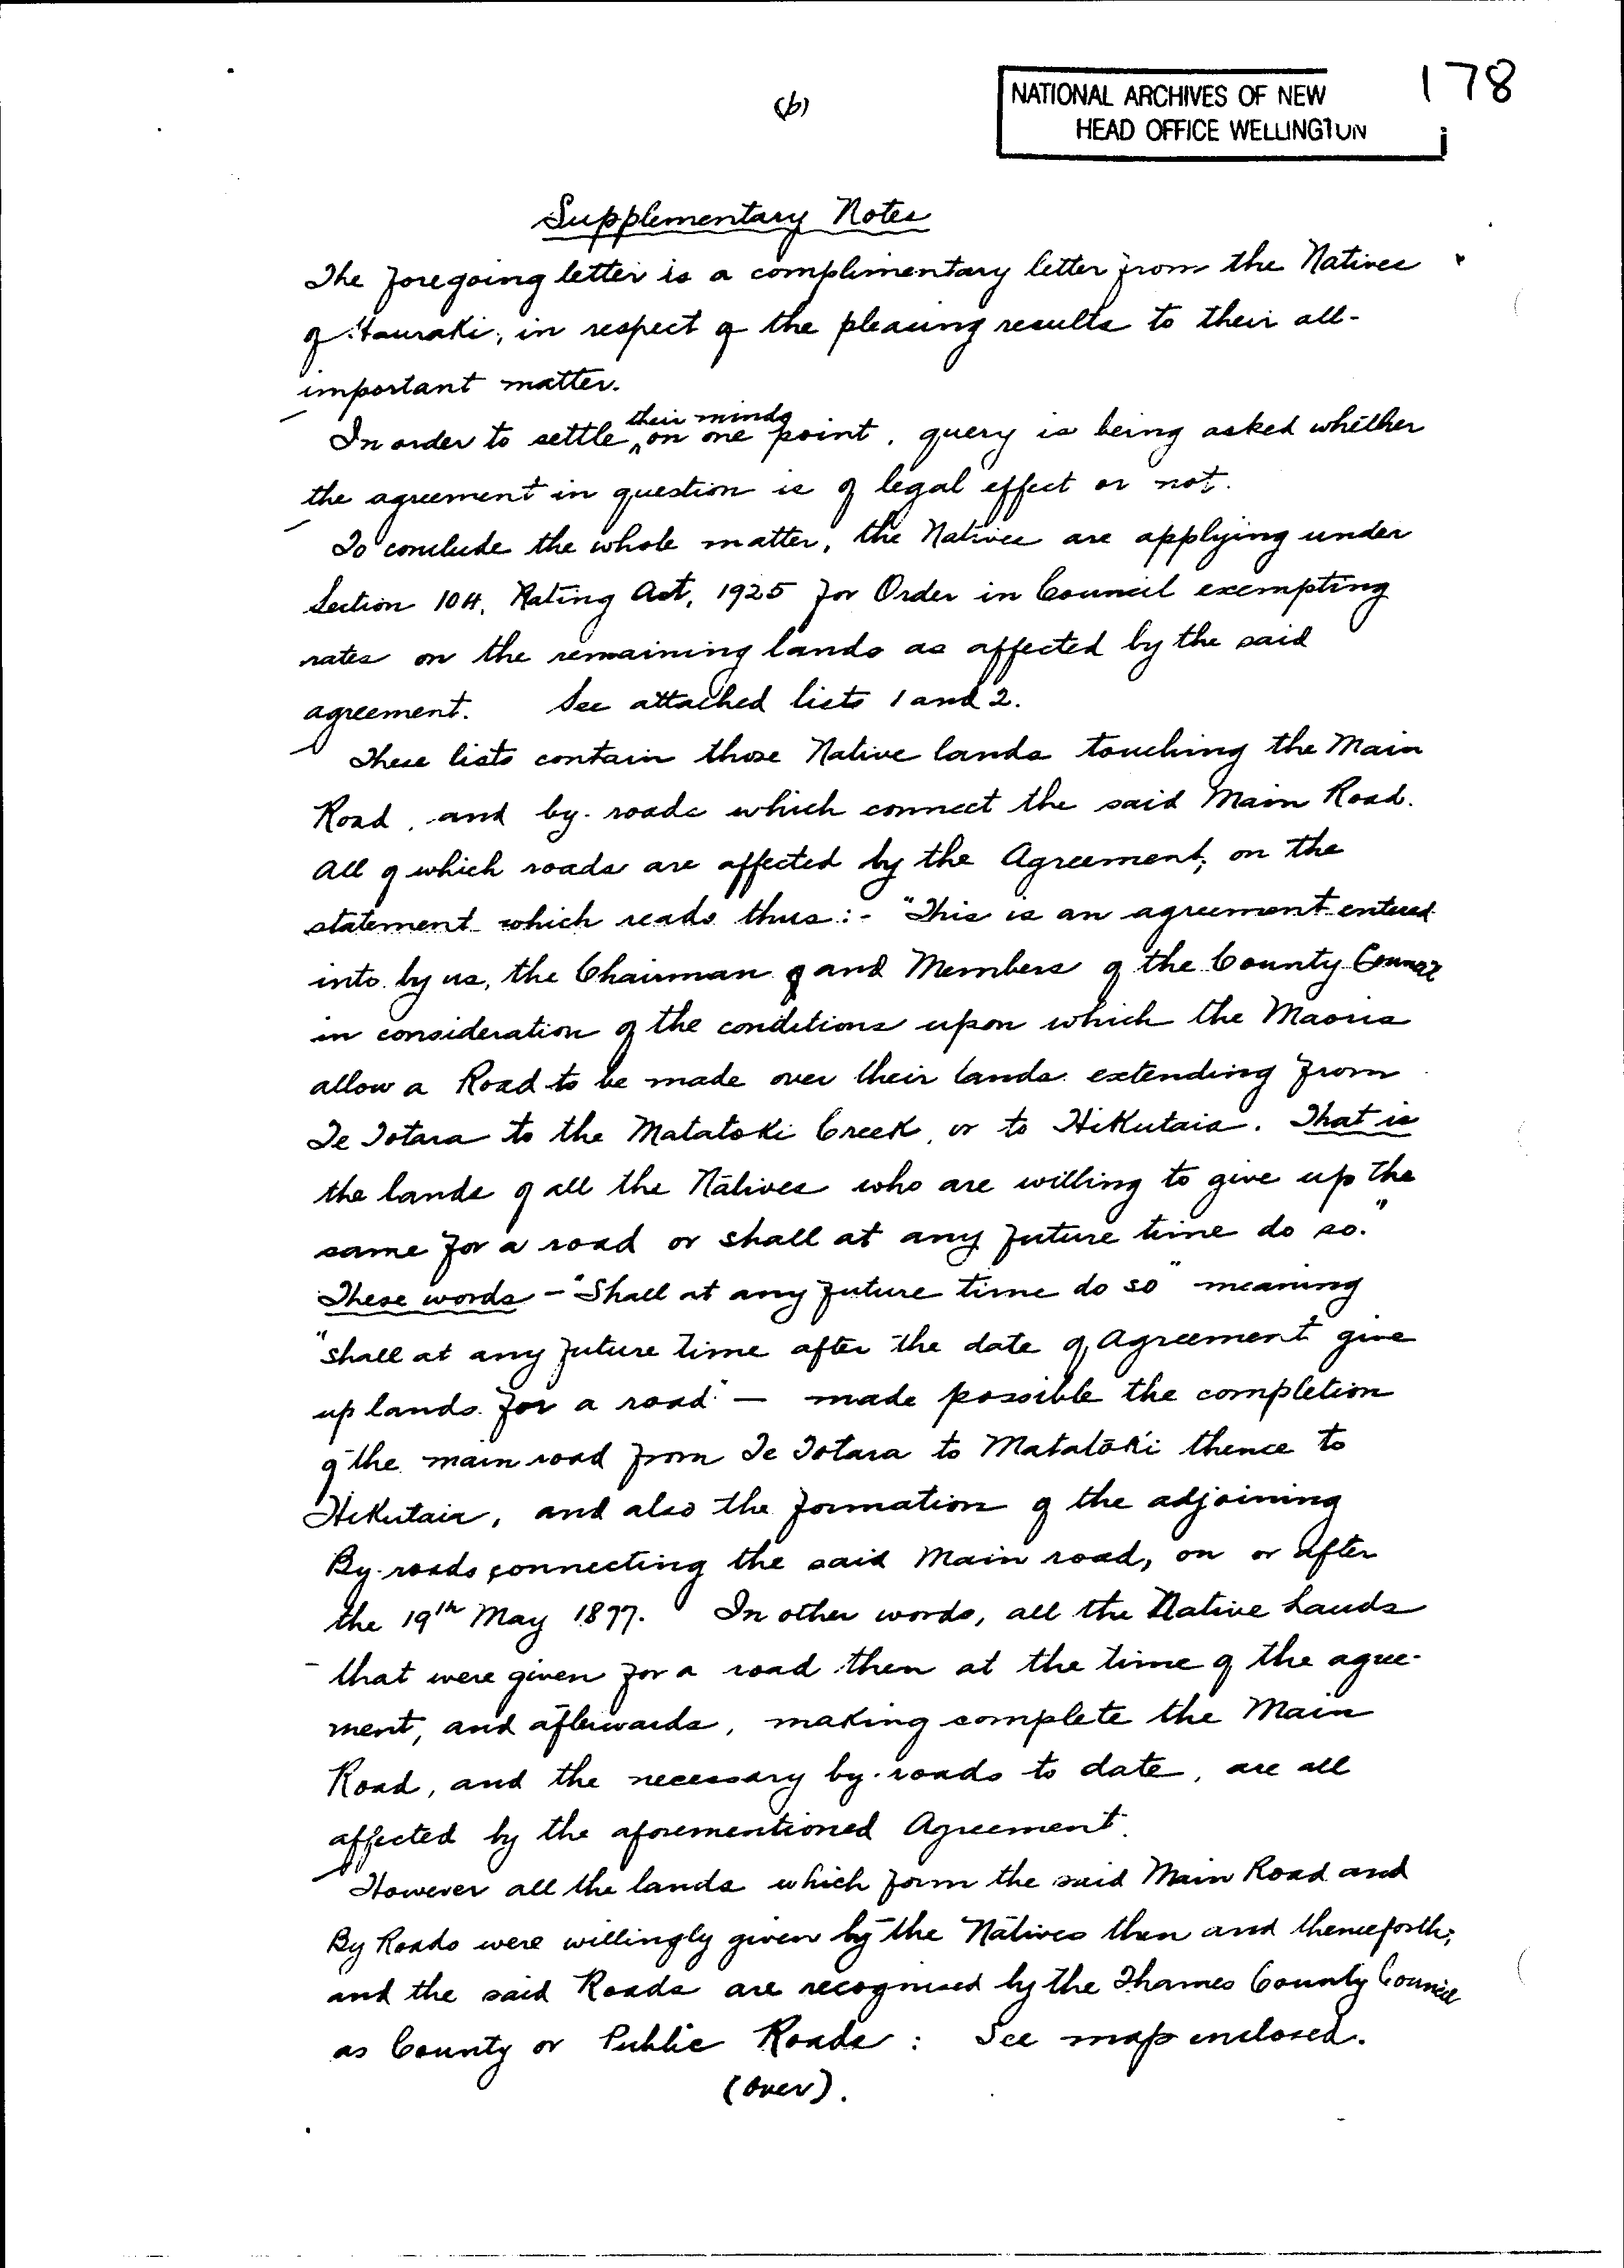 178
(b)
NATIONAL ARCHIVES OF NEW
HEAD OFFICE WELLINGTON
Supplementary Notes
The foregoing letter is a complimentary letter from the Natives
of Hauraki, in respect of the pleasing results to their all-
important matter.
In order to settle their minds on one point, query is being asked whether
the agreement in question is of legal effect or not.
To conclude the whole matter, the Natives are applying under
Section 104, Rating Act, 1925 for Order in Council exempting
rates on the remaining lands as affected by the said
agreement. See attached lists 1 and 2.
These lists contain those Native lands touching the Main
Road, and by-roads which connect the said Main Road.
All of which roads are affected by the Agreement, on the
statement which reads thus:- "This is an agreement entered
into by us, the Chairman and Members of the County Council
in consideration of the conditions upon which the Maoris
allow a Road to be made over their lands extending from
Te Totara to the Matatoki Creek, or to Hikutaia. That is
the lands of all the Natives who are willing to give up the
same for a road or shall at any future time do so."
These words - "Shall at any future time do so" meaning
"shall at any future time after the date of Agreement give
up lands for a road" — made possible the completion
of the main road from Te Totara to Matatoki thence to
Hikutaia, and also the formation of the adjoining
By-roads connecting the said Main road, on or after
the 19th May 1877. In other words, all the Native Lands
that were given for a road then at the time of the agree-
ment, and afterwards, making complete the Main
Road, and the necessary by-roads to date, are all
affected by the aforementioned Agreement.
However all the lands which form the said Main Road and
By Roads were willingly given by the Natives then and thenceforth;
and the said Roads are recognised by the Thames County Council
as County or Public Roads: See map enclosed.
(over).